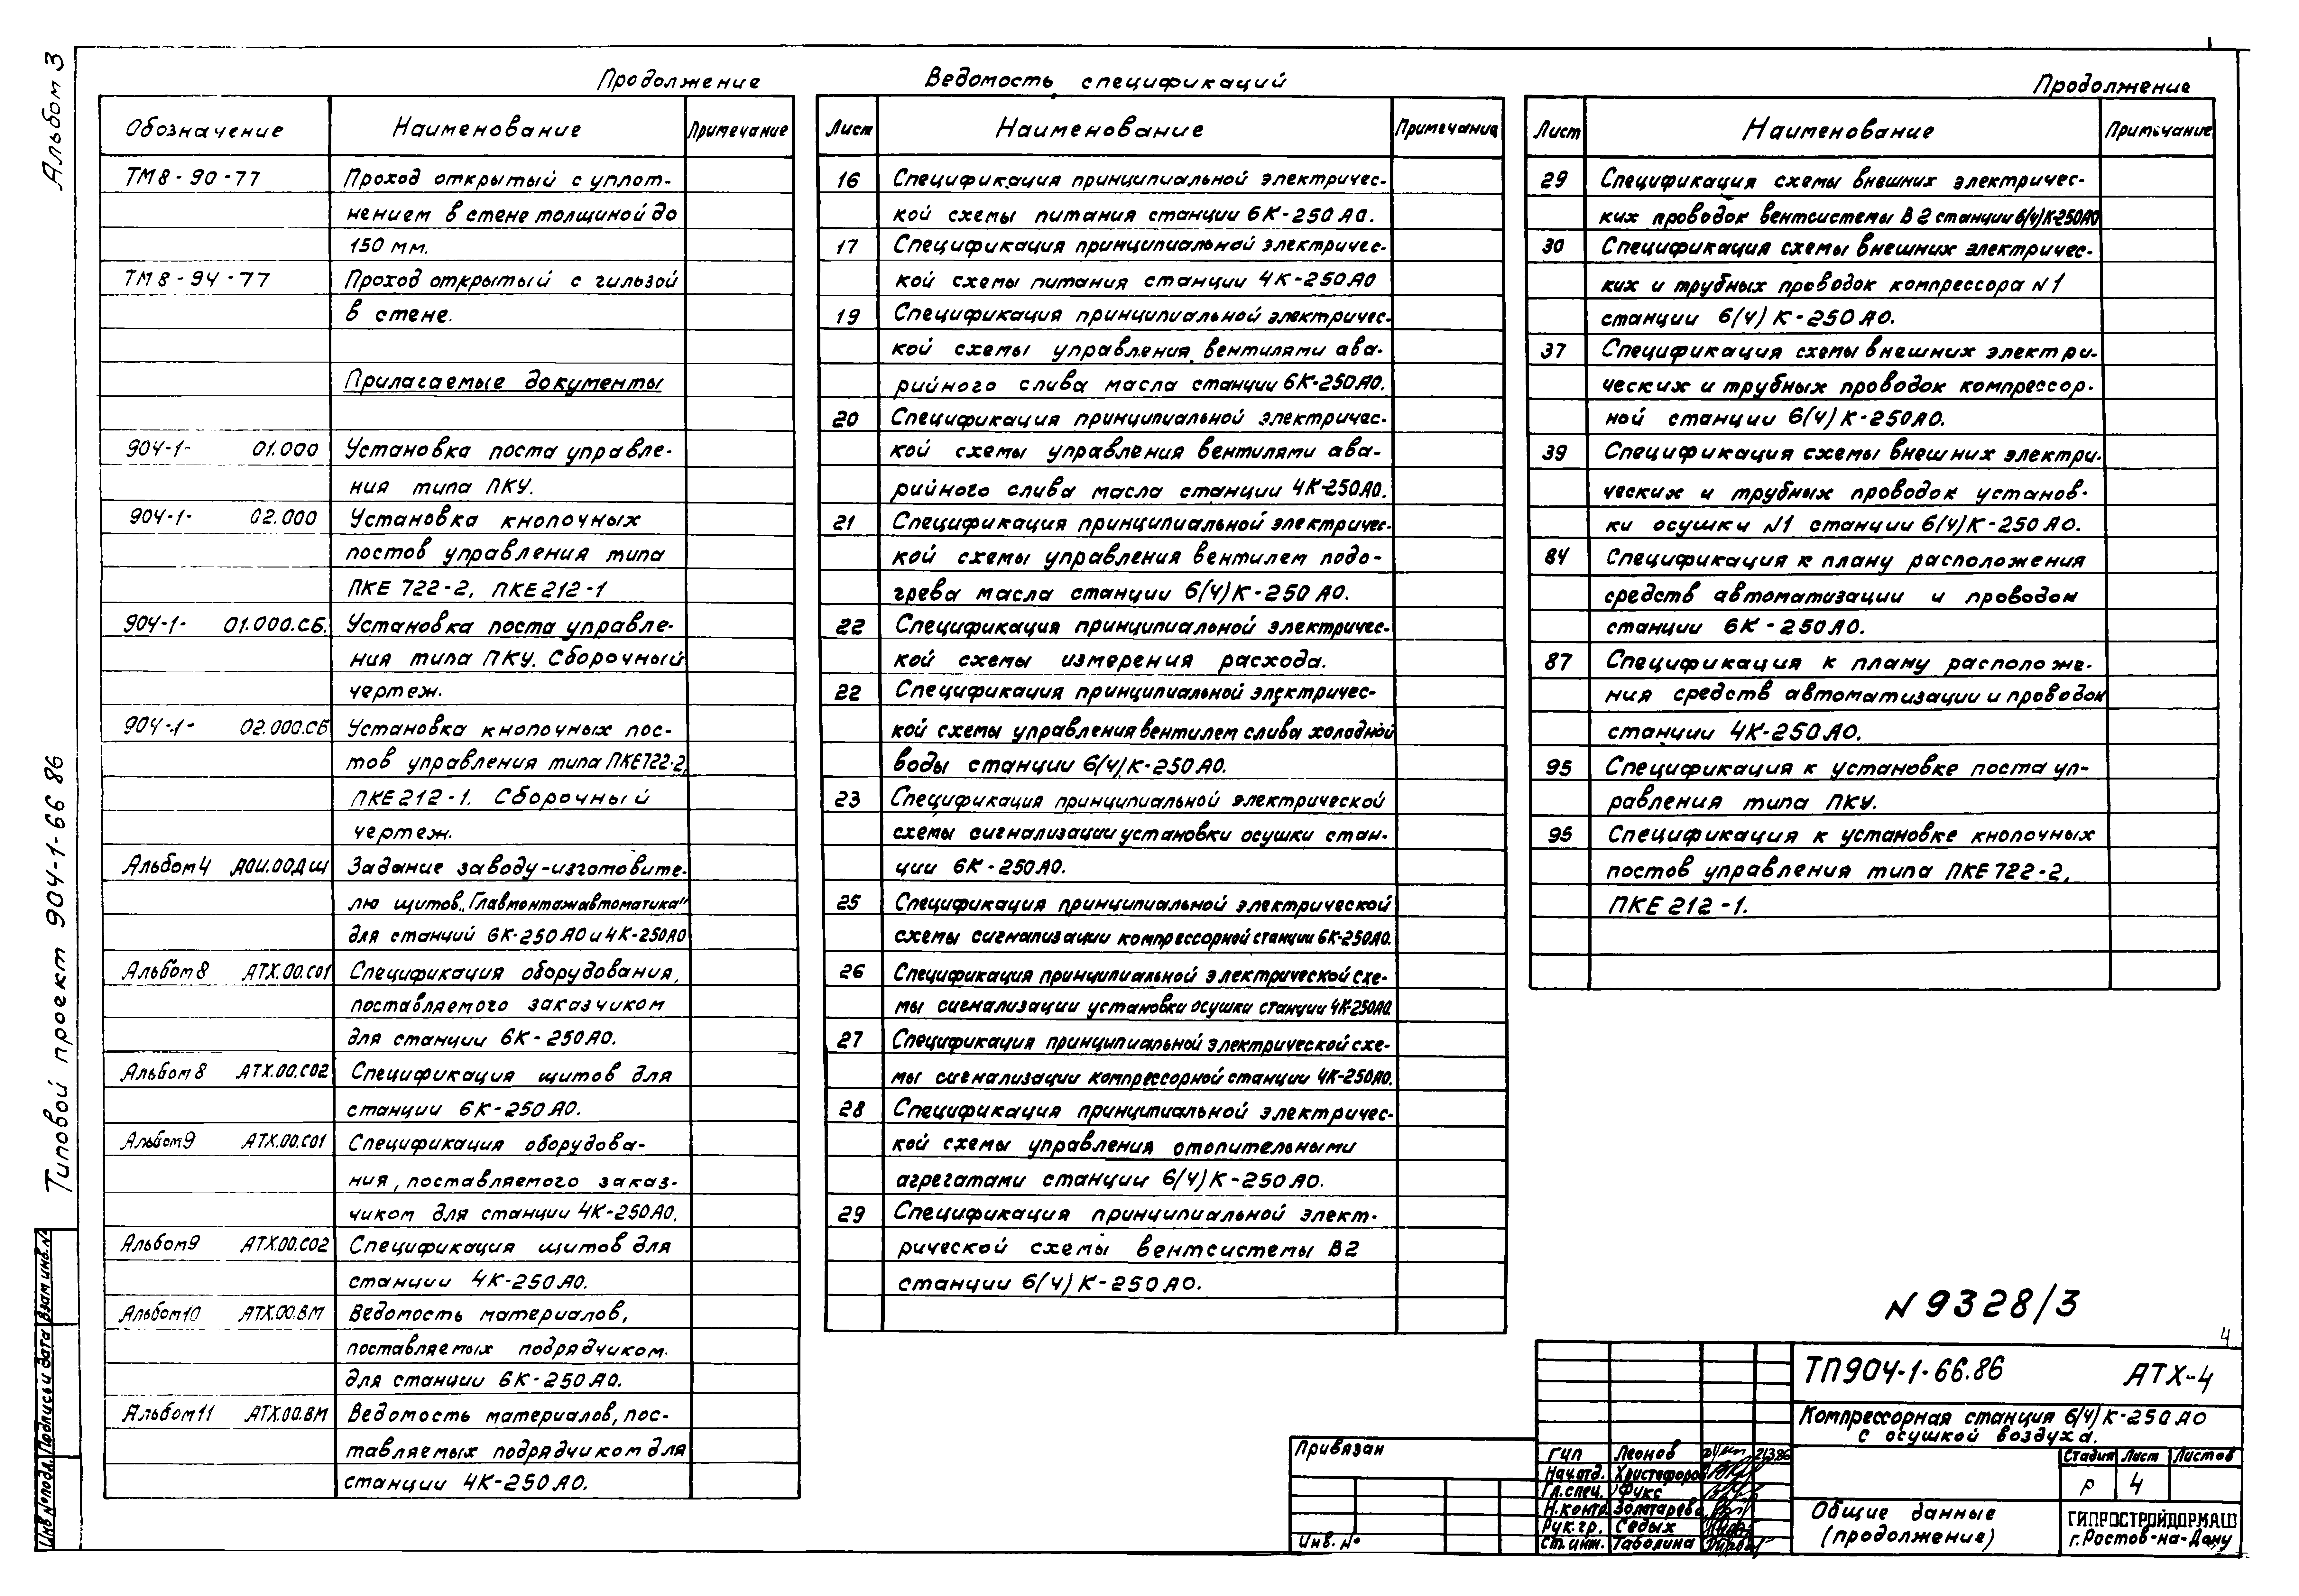 Альбом 3
Типовой проект 904-1-66 86
Продолжение
Обозначение Наименование Примечание
ТМ8-90-77 Проход открытый с уплот-
нением в стене толщиной до
150 мм.
ТМ8-94-77 Проход открытый с гильзой
в стене.
Прилагаемые документы
904-1- 01.000 Установка поста управле-
ния типа ПКУ.
904-1- 02.000 Установка кнопочных
постов управления типа
ПКЕ 722-2, ПКЕ 212-1
904-1- 01.000.СБ. Установка поста управле-
ния типа ПКУ. Сборочный
чертеж.
904-1- 02.000.СБ Установка кнопочных пос-
тов управления типа ПКЕ722-2,
ПКЕ 212-1. Сборочный
чертеж.
Альбом 4 А0И.00ДЩ Задание заводу-изготовите-
лю щитов „Главмонтажавтоматика"
для станций 6К-250А0 и 4К-250А0
Альбом 8 АТХ.00.С01 Спецификация оборудования,
поставляемого заказчиком
для станции 6К-250А0.
Альбом 8 АТХ.00.С02 Спецификация щитов для
станции 6К-250А0.
Альбом 9 АТХ.00.С01 Спецификация оборудова-
ния, поставляемого заказ-
чиком для станции 4К-250А0.
Альбом 9 АТХ.00.С02 Спецификация щитов для
станции 4К-250А0.
Альбом 10 АТХ.00.ВМ Ведомость материалов,
поставляемых подрядчиком.
для станции 6К-250А0.
Альбом 11 АТХ.00.ВМ Ведомость материалов, пос-
тавляемых подрядчиком для
станции 4К-250А0.
Ведомость спецификаций
Лист Наименование Примечания
16 Спецификация принципиальной электричес-
кой схемы питания станции 6К-250А0.
17 Спецификация принципиальной электричес-
кой схемы питания станции 4К-250А0
19 Спецификация принципиальной электричес-
кой схемы управления вентилями ава-
рийного слива масла станции 6К-250А0.
20 Спецификация принципиальной электричес-
кой схемы управления вентилями ава-
рийного слива масла станции 4К-250А0.
21 Спецификация принципиальной электричес-
кой схемы управления вентилем подо-
грева масла станции 6(4)К-250А0.
22 Спецификация принципиальной электричес-
кой схемы измерения расхода.
22 Спецификация принципиальной электричес-
кой схемы управления вентилем слива холодной
воды станции 6(4)К-250А0.
23 Спецификация принципиальной электрической
схемы сигнализации установки осушки стан-
ции 6К-250А0.
25 Спецификация принципиальной электрической
схемы сигнализации компрессорной станции 6К-250А0.
26 Спецификация принципиальной электрической схе-
мы сигнализации установки осушки станции 4К-250А0.
27 Спецификация принципиальной электрической схе-
мы сигнализации компрессорной станции 4К-250А0.
28 Спецификация принципиальной электричес-
кой схемы управления отопительными
агрегатами станции 6(4)К-250А0.
29 Спецификация принципиальной элект-
рической схемы вентсистемы В2
станции 6(4)К-250А0.
Продолжение
Лист Наименование Примечание
29 Спецификация схемы внешних электричес-
ких проводок вентсистемы В2 станции 6(4)К-250А0
30 Спецификация схемы внешних электричес-
ких и трубных проводок компрессора N1
станции 6(4)К-250А0.
37 Спецификация схемы внешних электри-
ческих и трубных проводок компрессор-
ной станции 6(4)К-250А0.
39 Спецификация схемы внешних электри-
ческих и трубных проводок установ-
ки осушки N1 станции 6(4)К-250А0.
84 Спецификация к плану расположения
средств автоматизации и проводок
станции 6К-250А0.
87 Спецификация к плану расположе-
ния средств автоматизации и проводок
станции 4К-250А0.
95 Спецификация к установке поста уп-
равления типа ПКУ.
95 Спецификация к установке кнопочных
постов управления типа ПКЕ 722-2,
ПКЕ 212-1.
N 9328/3
4
ТП904-1-66.86 АТХ-4
Компрессорная станция 6(4)К-250А0
с осушкой воздуха.
Стадия Лист Листов
Р 4
Общие данные
(продолжение)
ГИПРОСТРОЙДОРМАШ
г.Ростов-на-Дону
ГИП Леонов
Нач.отд. Христофоров
Гл.спец. Фукс
Н.контр. Золотарева
Рук.гр. Седых
Ст.инж. Таболина
Привязан
Инв. №
Взам инв.№
Подпись и дата
Инв № подл.